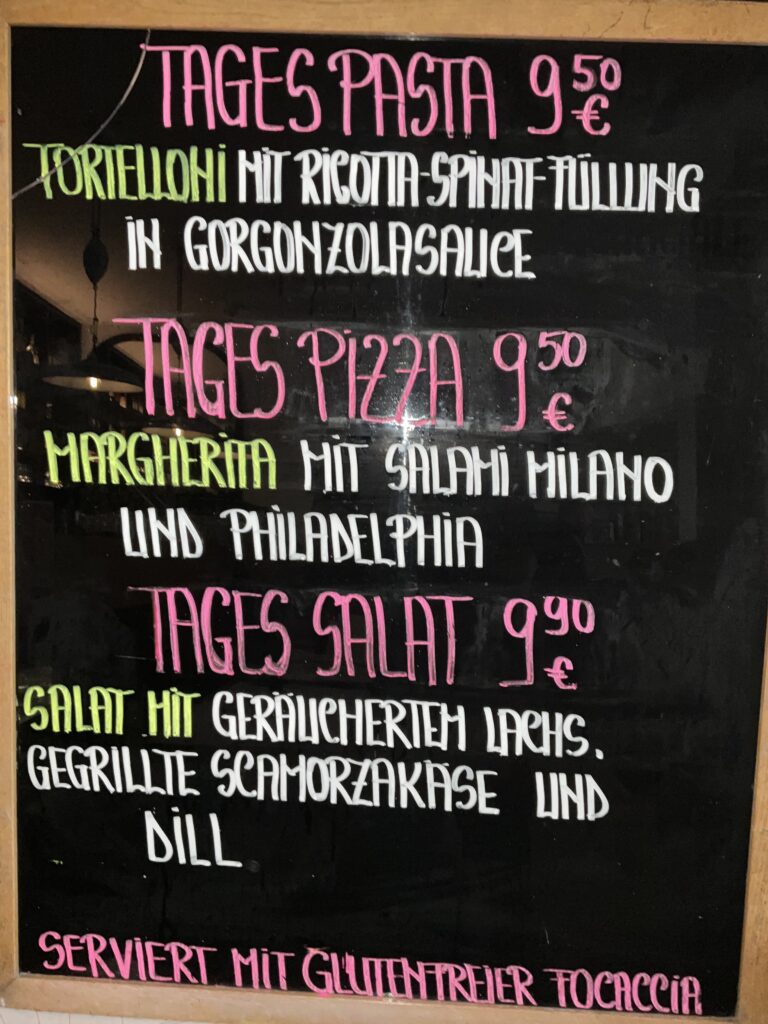 TAGES PASTA 9 50 €
TORTELLONI MIT RICOTTA-SPINAT-FÜLLUNG
IN GORGONZOLASAUCE
TAGES PIZZA 9 50 €
MARGHERITA MIT SALAMI MILANO
UND PHILADELPHIA
TAGES SALAT 9 90 €
SALAT MIT GERÄUCHERTEM LACHS.
GEGRILLTE SCAMORZAKÄSE UND
DILL
SERVIERT MIT GLUTENFREIER FOCACCIA